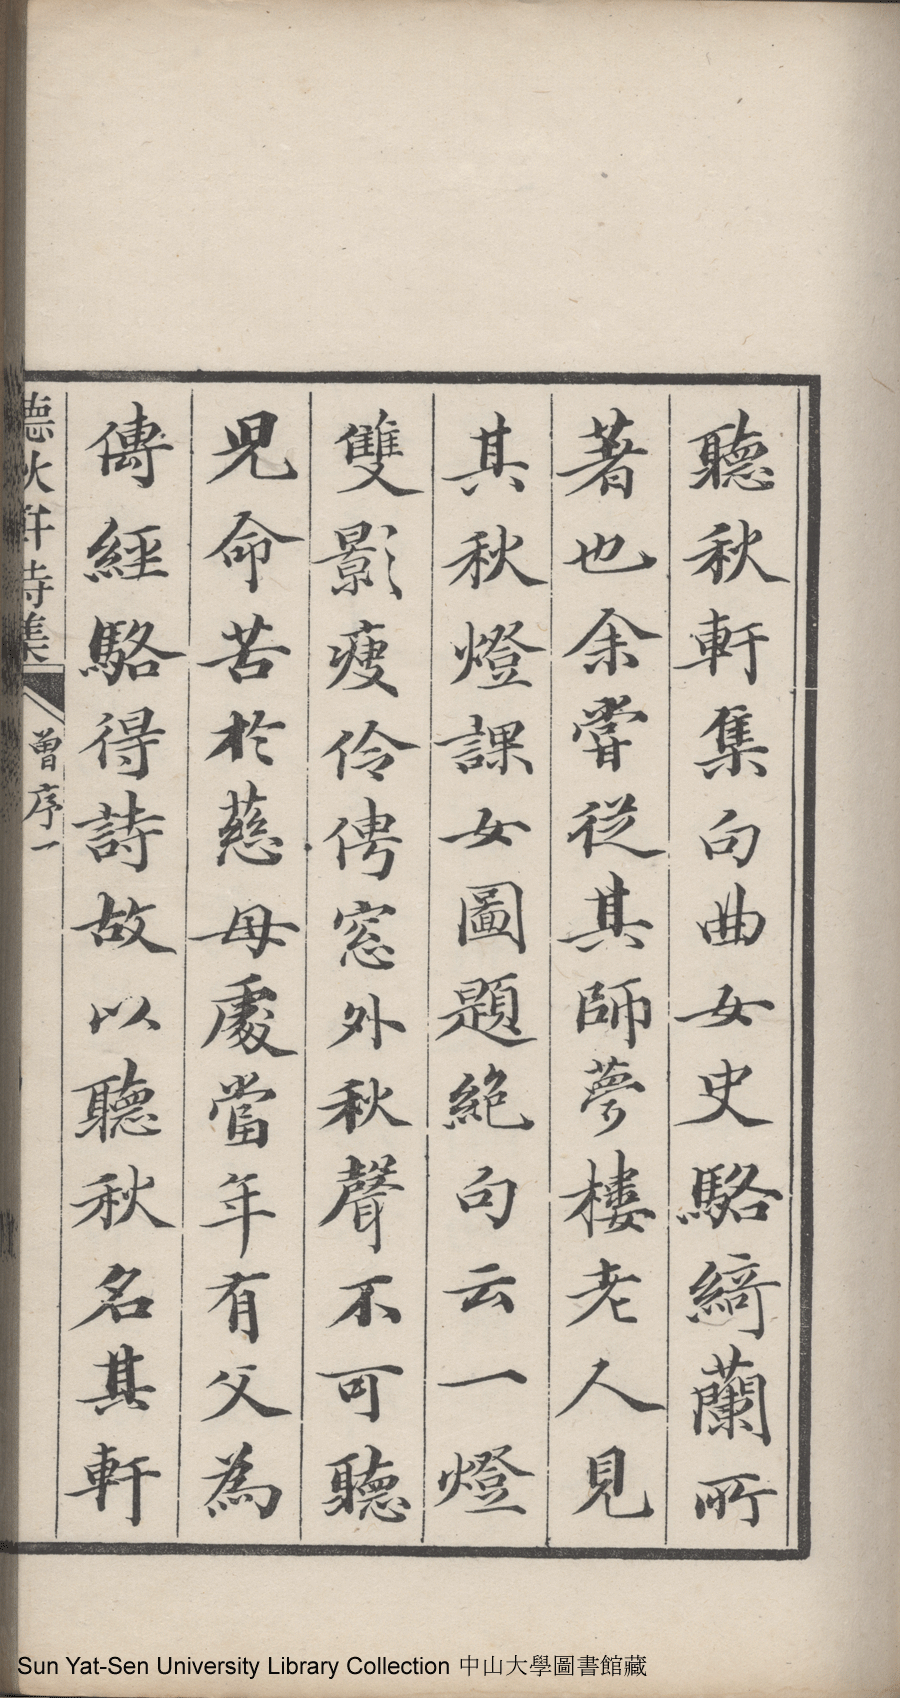 聽秋軒集句曲女史駱綺蘭所
著也余嘗從其師夢樓老人見
其秋燈課女圖題絶句云一燈
雙影瘦伶俜窓外秋聲不可聽
児命苦於慈母處當年有父為
傳經駱得詩故以聽秋名其軒
聽秋軒詩集
曾序一
Sun Yat-Sen University Library Collection 中山大學圖書館藏